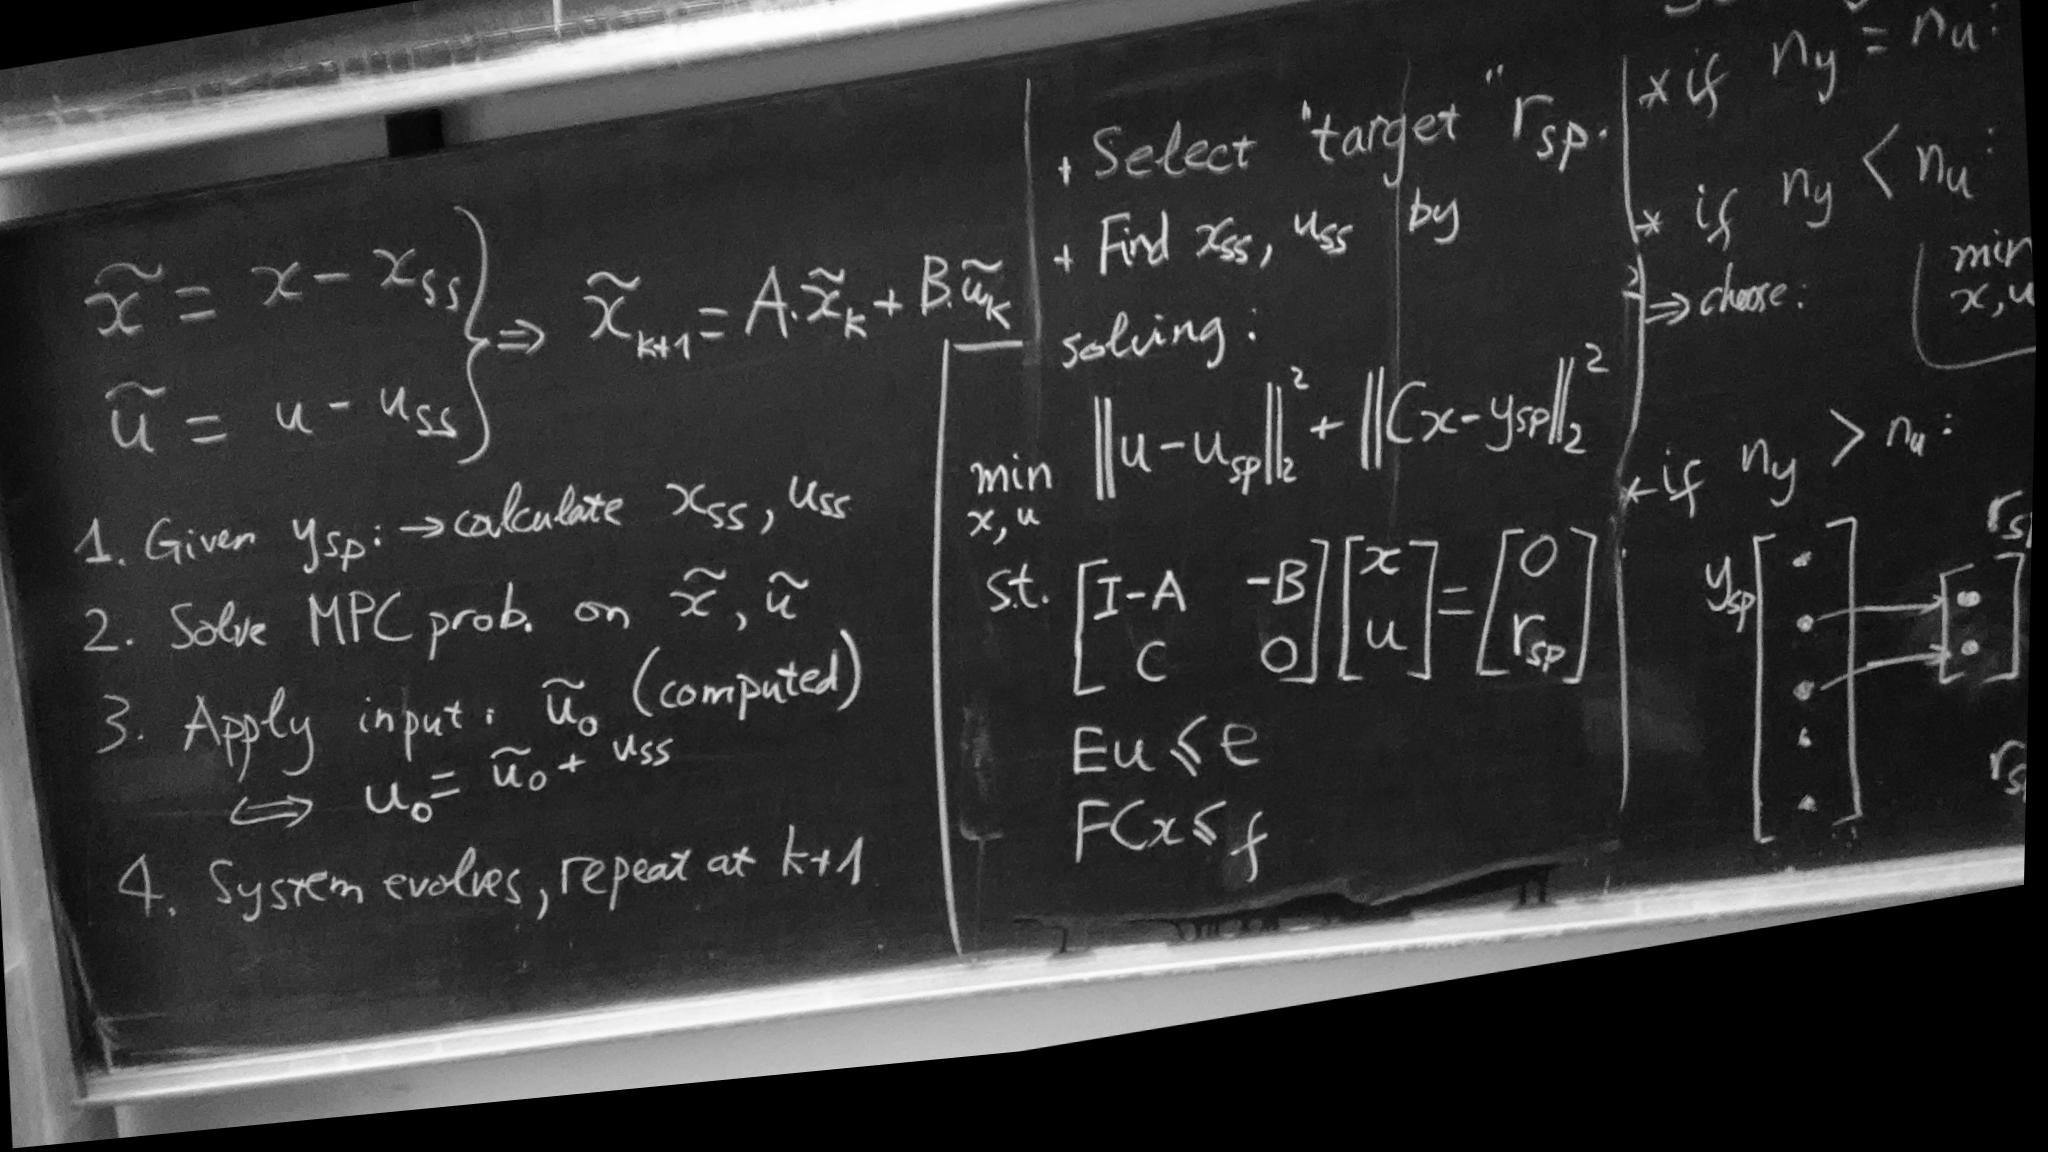 x̃ = x - x_ss } ⇒ x̃_{k+1} = A.x̃_k + B.ũ_k
ũ = u - u_ss
1. Given y_sp: → calculate x_ss, u_ss
2. Solve MPC prob. on x̃, ũ
3. Apply input: ũ_0 (computed)
⟺ u_0 = ũ_0 + u_ss
4. System evolves, repeat at k+1
+ Select "target" r_sp.
+ Find x_ss, u_ss by
solving:
min ‖u - u_sp‖_2^2 + ‖Cx - y_sp‖_2^2
x, u
s.t. [I-A -B] [x] = [0]
[C 0] [u] [r_sp]
Eu ⩽ e
FCx ⩽ f
* if n_y = n_u:
* if n_y < n_u:
⇒ choose: min
x, u
* if n_y > n_u:
y_sp